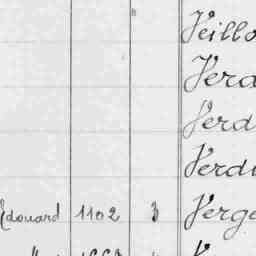 Veillo
Verd
Verd
Verdi
Edouard 1102 3 Verge